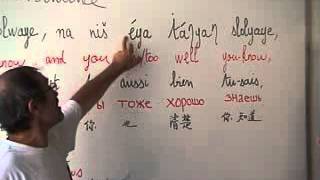 olwaye, na niš éya ťáŋyaŋ slolyaye,
now — and you too well you know,
aussi bien tu-sais,
ты тоже хорошо знаешь
你 也 清楚 你 知道